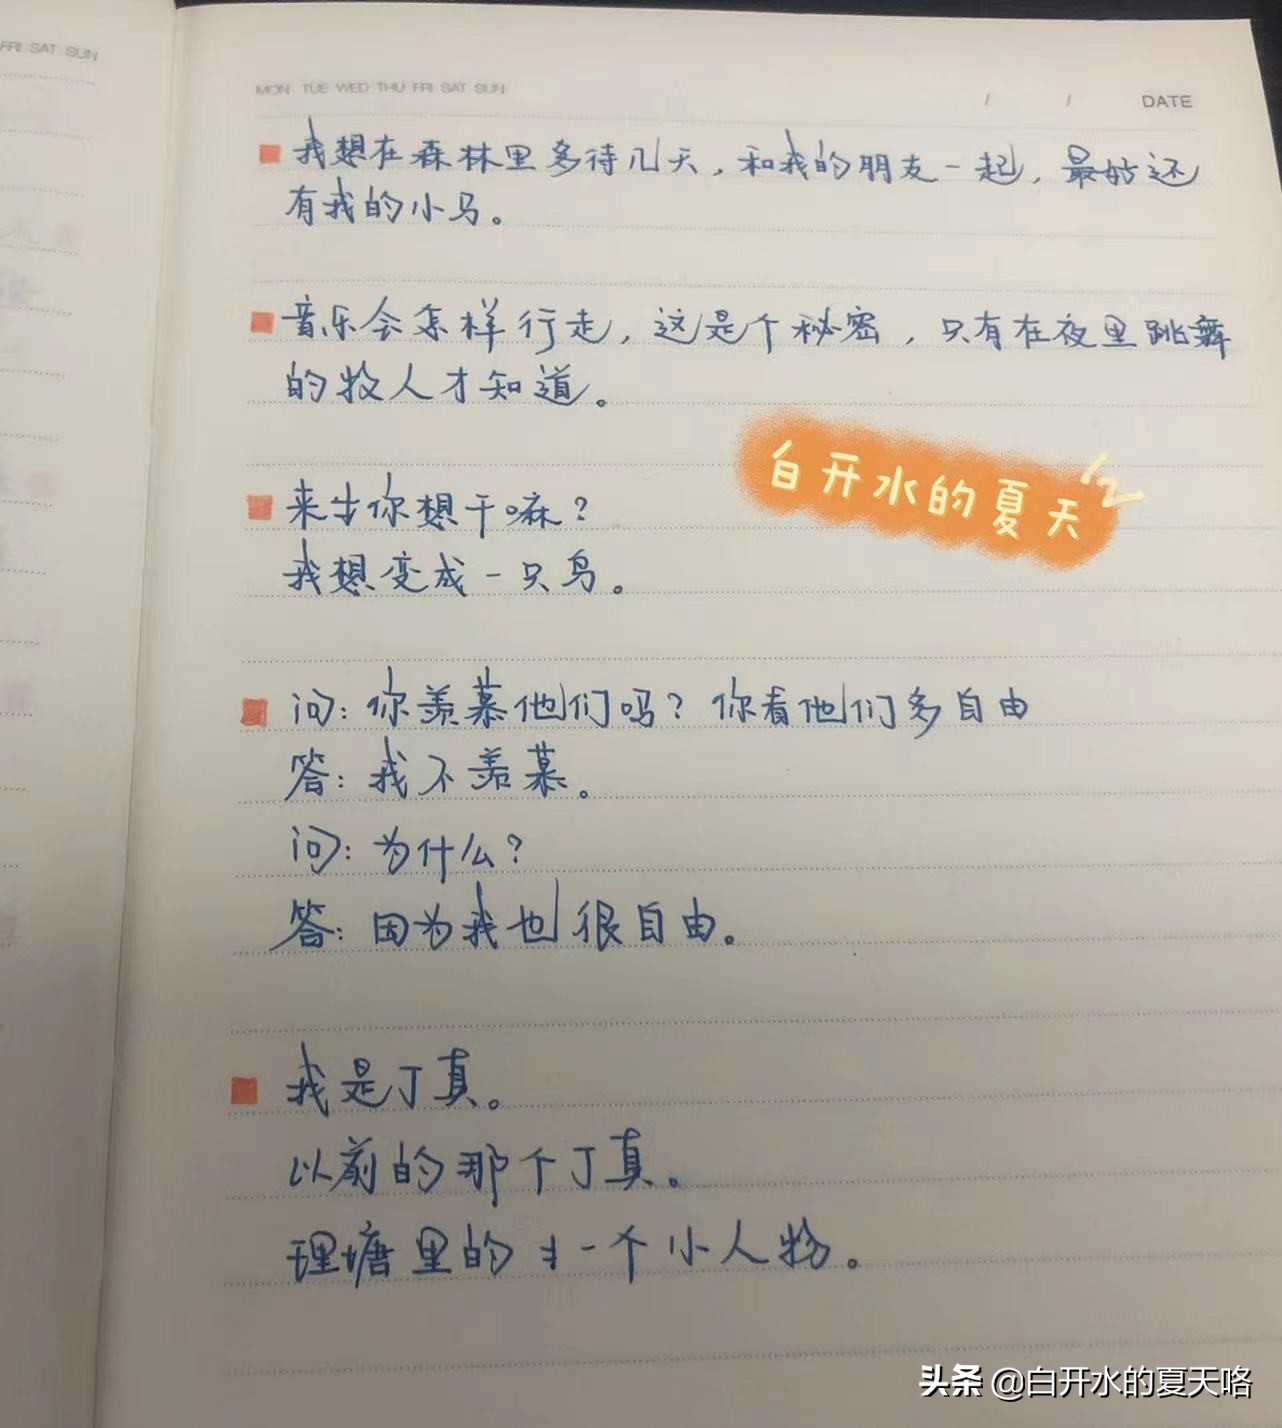 FRI SAT SUN
MON TUE WED THU FRI SAT SUN
/ / DATE
我想在森林里多待几天，和我的朋友一起，最好还
有我的小马。
音乐会怎样行走，这是个秘密，只有在夜里跳舞
的牧人才知道。
白开水的夏天
来生你想干嘛？
我想变成一只鸟。
问：你羡慕他们吗？你看他们多自由
答：我不羡慕。
问：为什么？
答：因为我也很自由。
我是丁真。
以前的那个丁真。
理塘里的 一个小人物。
头条 @白开水的夏天咯